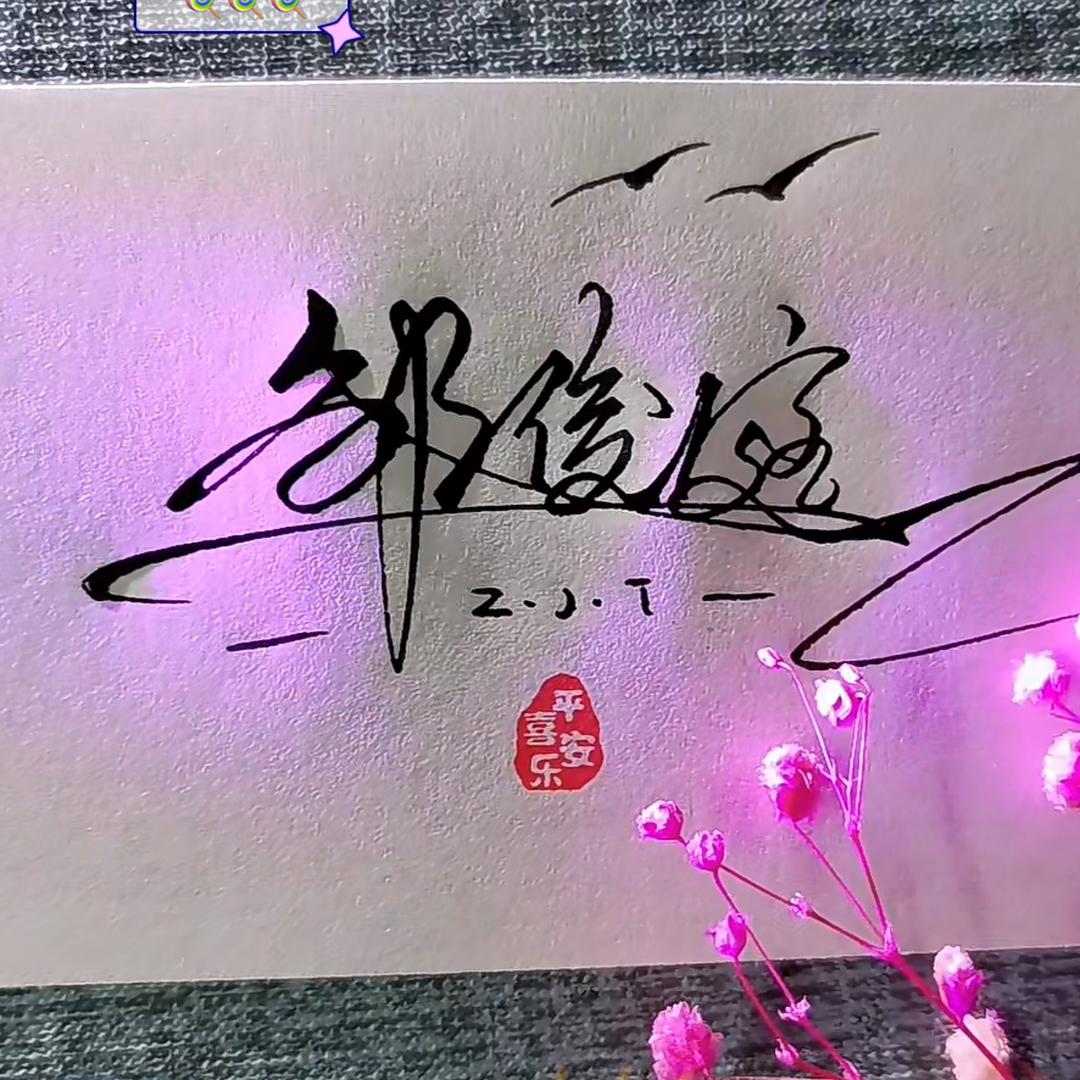 邹俊庭
Z.J.T
平安
喜乐